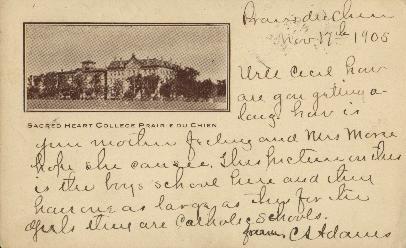 Prairie du Chien
Nov 17th 1905
Well Cecil how
are you getting a-
long how is
your mother feeling and Mrs Morse
hope she can see. This picture on this
is the boys school here and they
have one as large as this for the
girls they are Catholic Schools.
SACRED HEART COLLEGE PRAIRIE DU CHIEN
from C A Adams